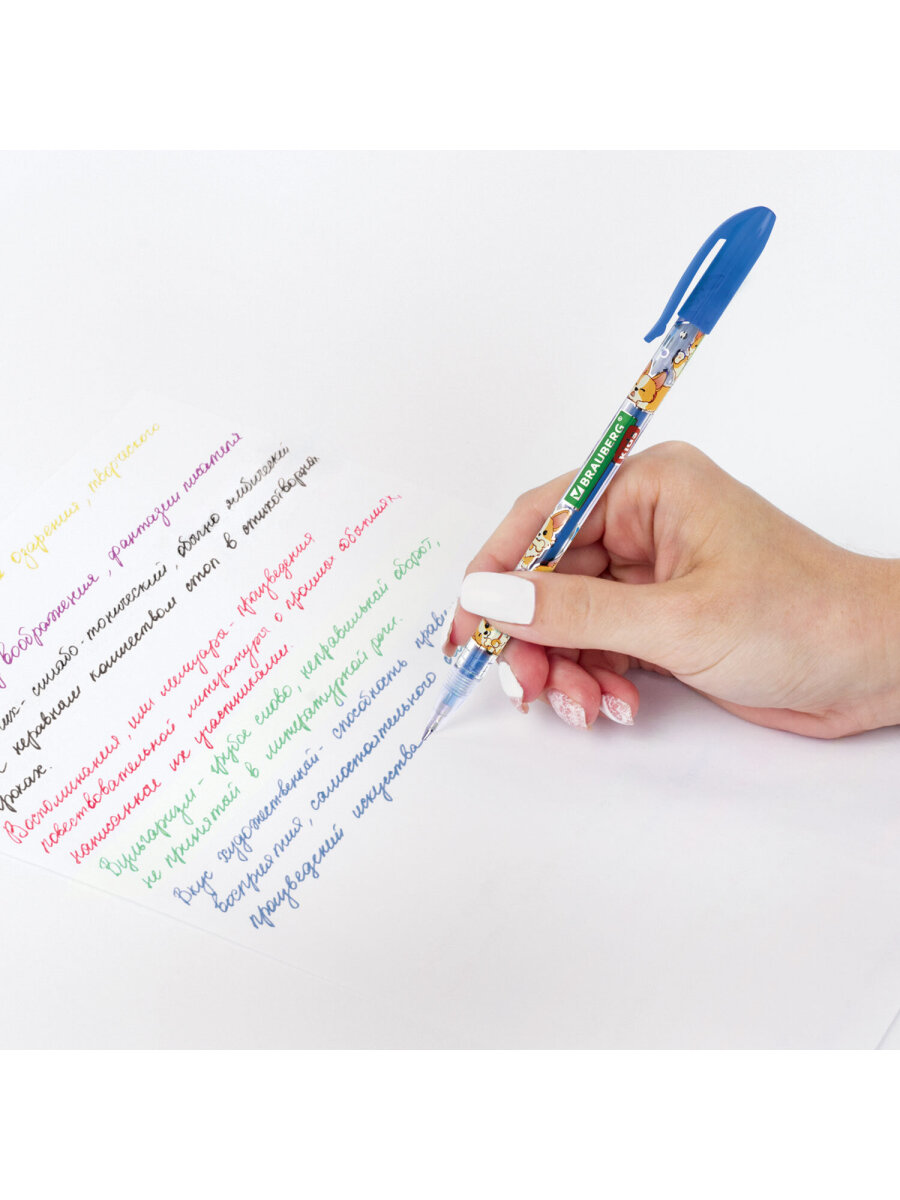 озарения, творческого
воображения, фантазии писателя
силабо-тонический, обычно ямбический
неравным количеством стоп в стихотворных
строках.
Воспоминания, или мемуары- произведения
повествовательной литературы о прошлых событиях,
написанное их участниками.
Вульгаризм- грубое слово, неправильный оборот,
не принятой в литературной речи.
Вкус художественный- способность прави
восприятия, самостоятельного
произведений искусства
BRAUBERG®
KIDS